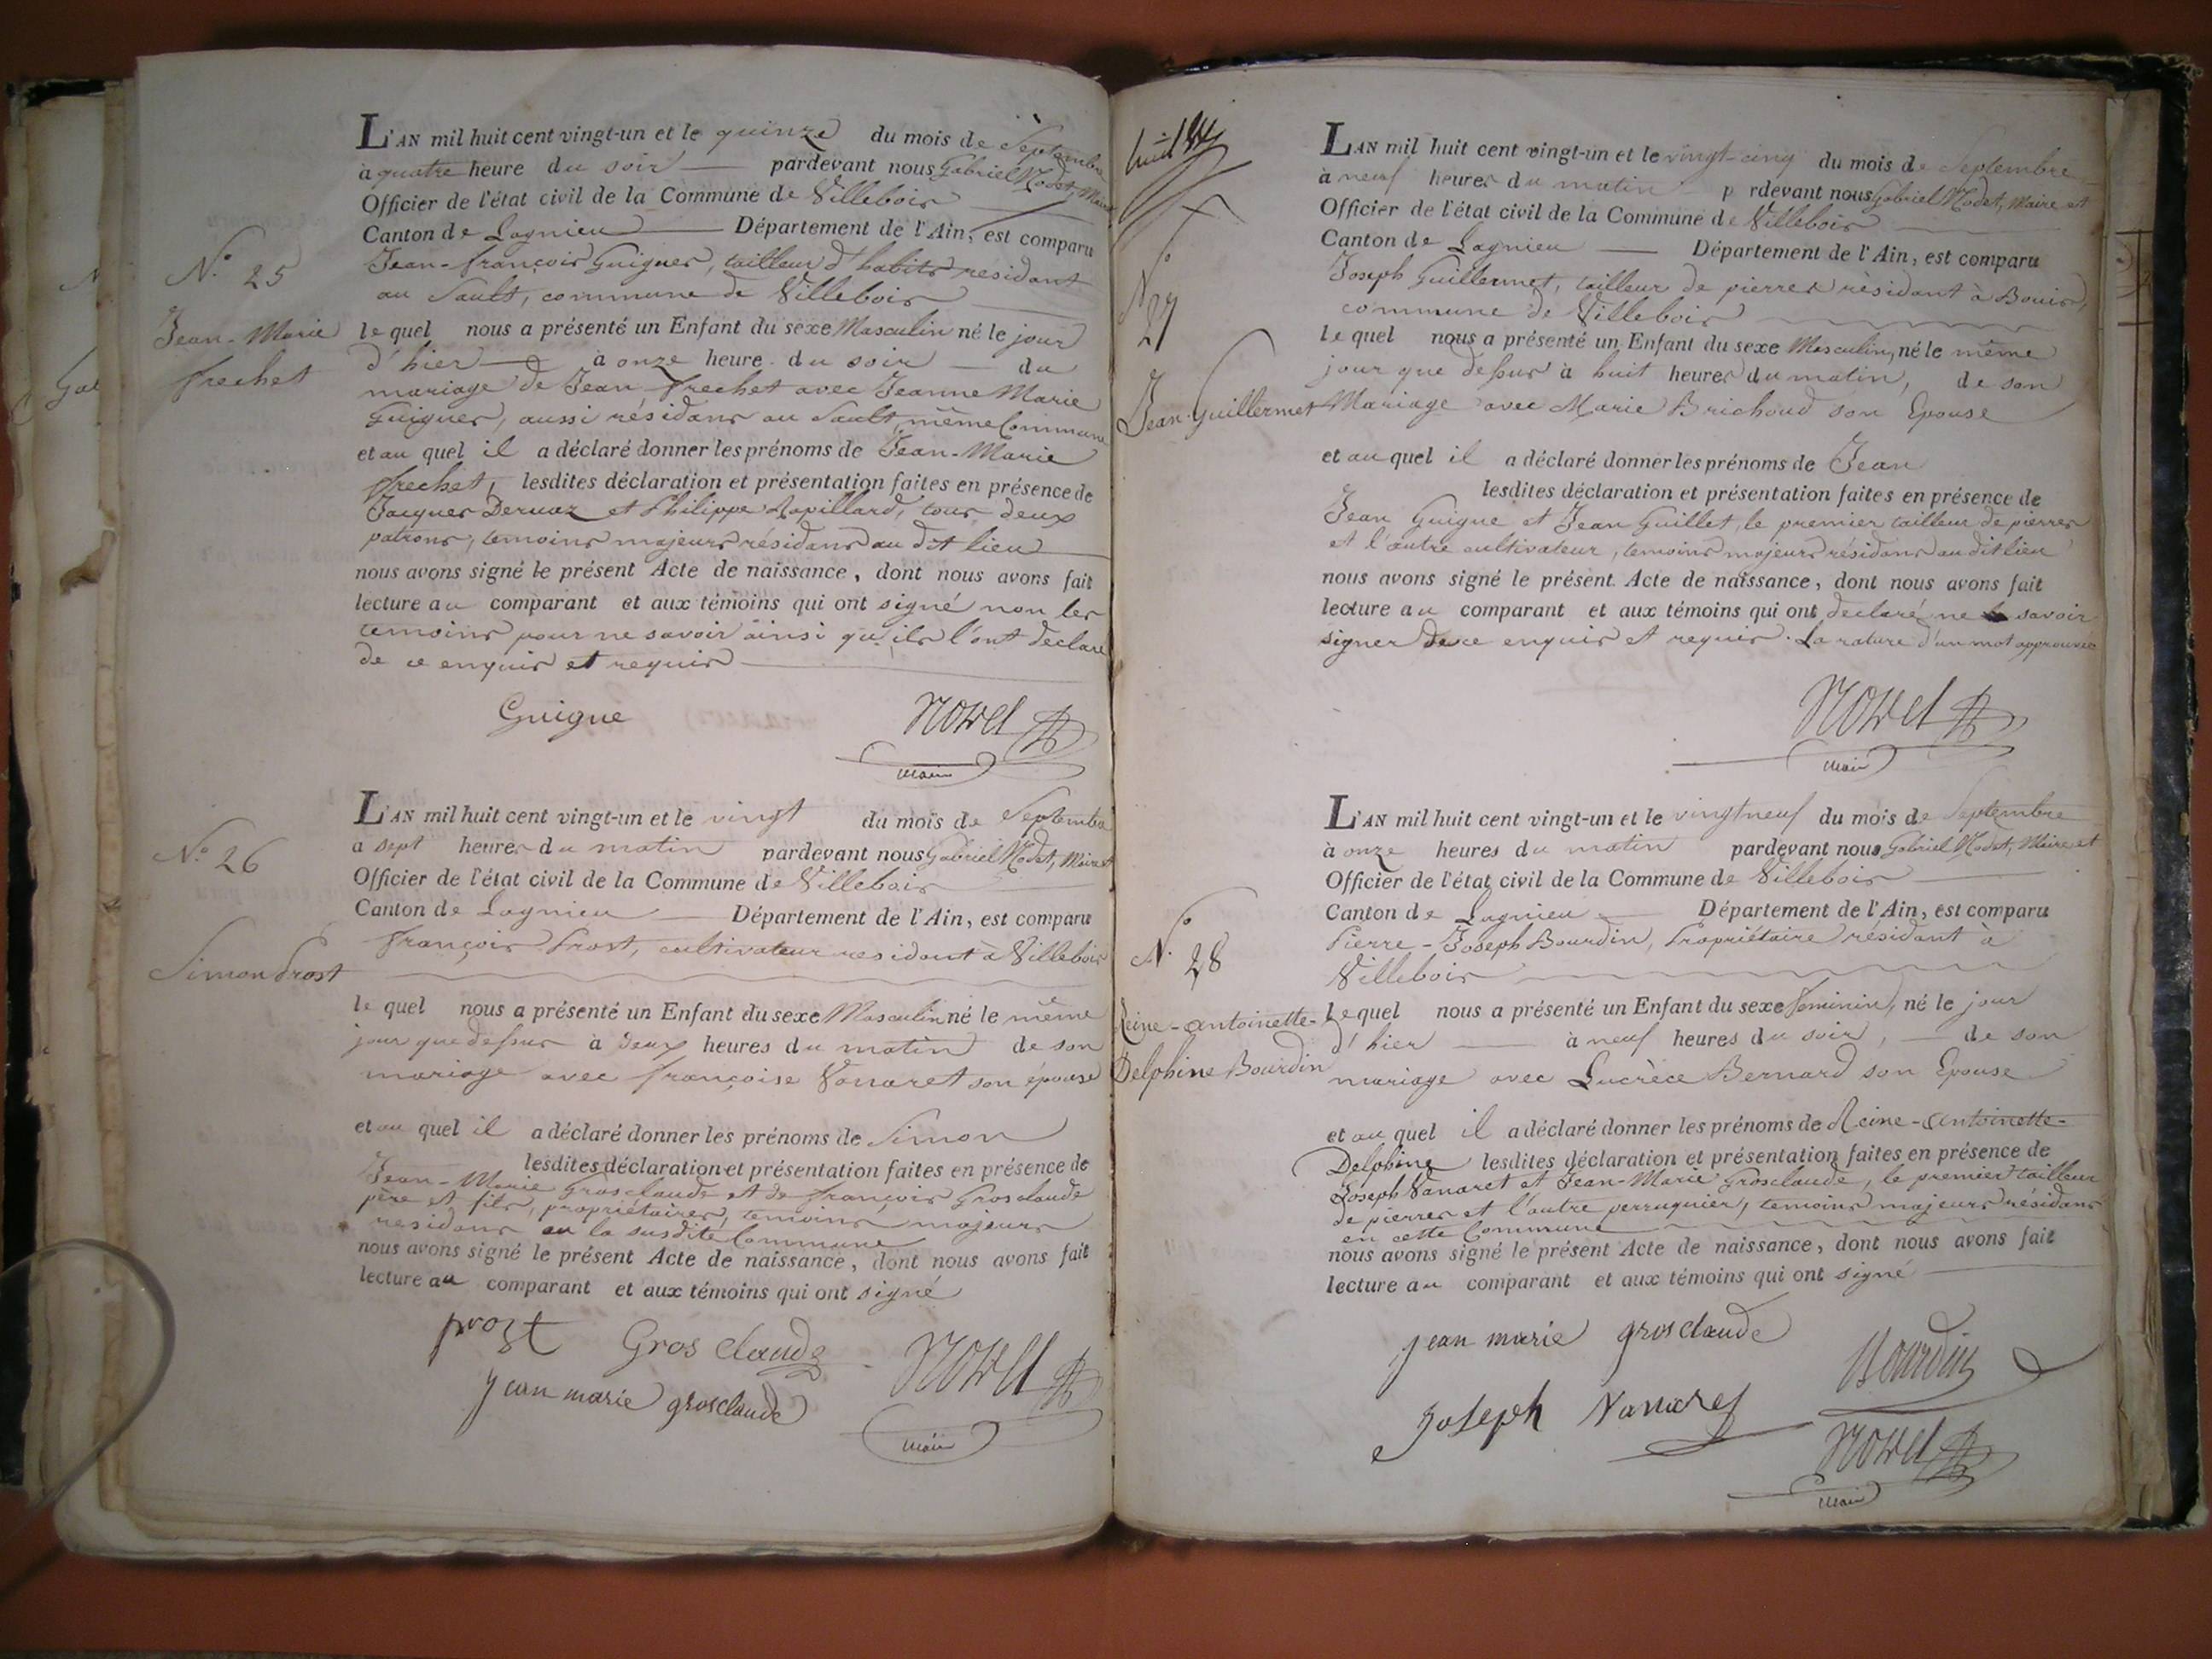 L'AN mil huit cent vingt-un et le quinze du mois de Septembre
à quatre heure du soir pardevant nous Gabriel Modet, Maire
Officier de l'état civil de la Commune de Villebois
Canton de Lagnieu Département de l'Ain, est comparu
Jean-françois Guigues, tailleur d'habits residant
au Sault, commune de Villebois
N.° 25
Jean-Marie
frechet
le quel nous a présenté un Enfant du sexe Masculin né le jour
d'hier à onze heure du soir du
mariage de Jean frechet avec Jeanne Marie
Guigues, aussi résidans au Sault même Commune
et au quel il a déclaré donner les prénoms de Jean-Marie
frechet, lesdites déclaration et présentation faites en présence de
Jacques Dervaz et Philippe Ravillard, tous deux
patrons, temoins majeurs résidans au dit lieu
nous avons signé le présent Acte de naissance, dont nous avons fait
lecture au comparant et aux témoins qui ont signé non les
temoins pour ne savoir ainsi qu'ils l'ont declaré
de ce enquis et requis
Guigue
Maire
L'AN mil huit cent vingt-un et le vingt du mois de Septembre
a sept heures du matin pardevant nous Gabriel Modet, Maire et
Officier de l'état civil de la Commune de Villebois
Canton de Lagnieu Département de l'Ain, est comparu
françois Prost, cultivateur residant à Villebois
N.° 26
Simon Prost
le quel nous a présenté un Enfant du sexe Masculin né le même
jour que dessus à deux heures du matin de son
mariage avec françoise Vanaret son épouse
et au quel il a déclaré donner les prénoms de Simon
lesdites déclaration et présentation faites en présence de
Jean-Marie Grosclaude et de françois Grosclaude
père et fils, propriétaires, temoins majeurs
residans en la susdite Commune
nous avons signé le présent Acte de naissance, dont nous avons fait
lecture au comparant et aux témoins qui ont signé
prost Gros claude
jean marie grosclaude
Maire
huit
L'AN mil huit cent vingt-un et le vingt-cinq du mois de Septembre
à neuf heures du matin p rdevant nous Gabriel Modet, Maire et
Officier de l'état civil de la Commune de Villebois
Canton de Lagnieu Département de l'Ain, est comparu
Joseph Guillermet, tailleur de pierres résidant à Bouis,
commune de Villebois
N.° 27
Jean Guillermet
le quel nous a présenté un Enfant du sexe Masculin, né le même
jour que dessus à huit heures du matin, de son
Mariage avec Marie Brichoud son Epouse
et au quel il a déclaré donner les prénoms de Jean
lesdites déclaration et présentation faites en présence de
Jean Guigue et Jean Guillet, le premier tailleur de pierres
et l'autre cultivateur, temoins majeurs résidans au dit lieu
nous avons signé le présent Acte de naissance, dont nous avons fait
lecture au comparant et aux témoins qui ont declaré ne savoir
signer de ce enquis et requis. La rature d'un mot approuvée
Maire
L'AN mil huit cent vingt-un et le vingt neuf du mois de Septembre
à onze heures du matin pardevant nous Gabriel Modet, Maire et
Officier de l'état civil de la Commune de Villebois
Canton de Lagnieu Département de l'Ain, est comparu
Pierre-Joseph Bourdin, Propriétaire résidant à
Villebois
N.° 28
Reine-Antoinette-
Delphine Bourdin
le quel nous a présenté un Enfant du sexe feminin, né le jour
d'hier à neuf heures du soir, de son
mariage avec Lucrèce Bernard son Epouse
et au quel il a déclaré donner les prénoms de Reine-Antoinette-
Delphine lesdites déclaration et présentation faites en présence de
Joseph Vanaret et Jean-Marie Grosclaude, le premier tailleur
de pierres et l'autre perruquier, temoins majeurs résidans
en cette Commune
nous avons signé le présent Acte de naissance, dont nous avons fait
lecture au comparant et aux témoins qui ont signé
jean marie grosclaude
Bourdin
Joseph Vanaret
Maire